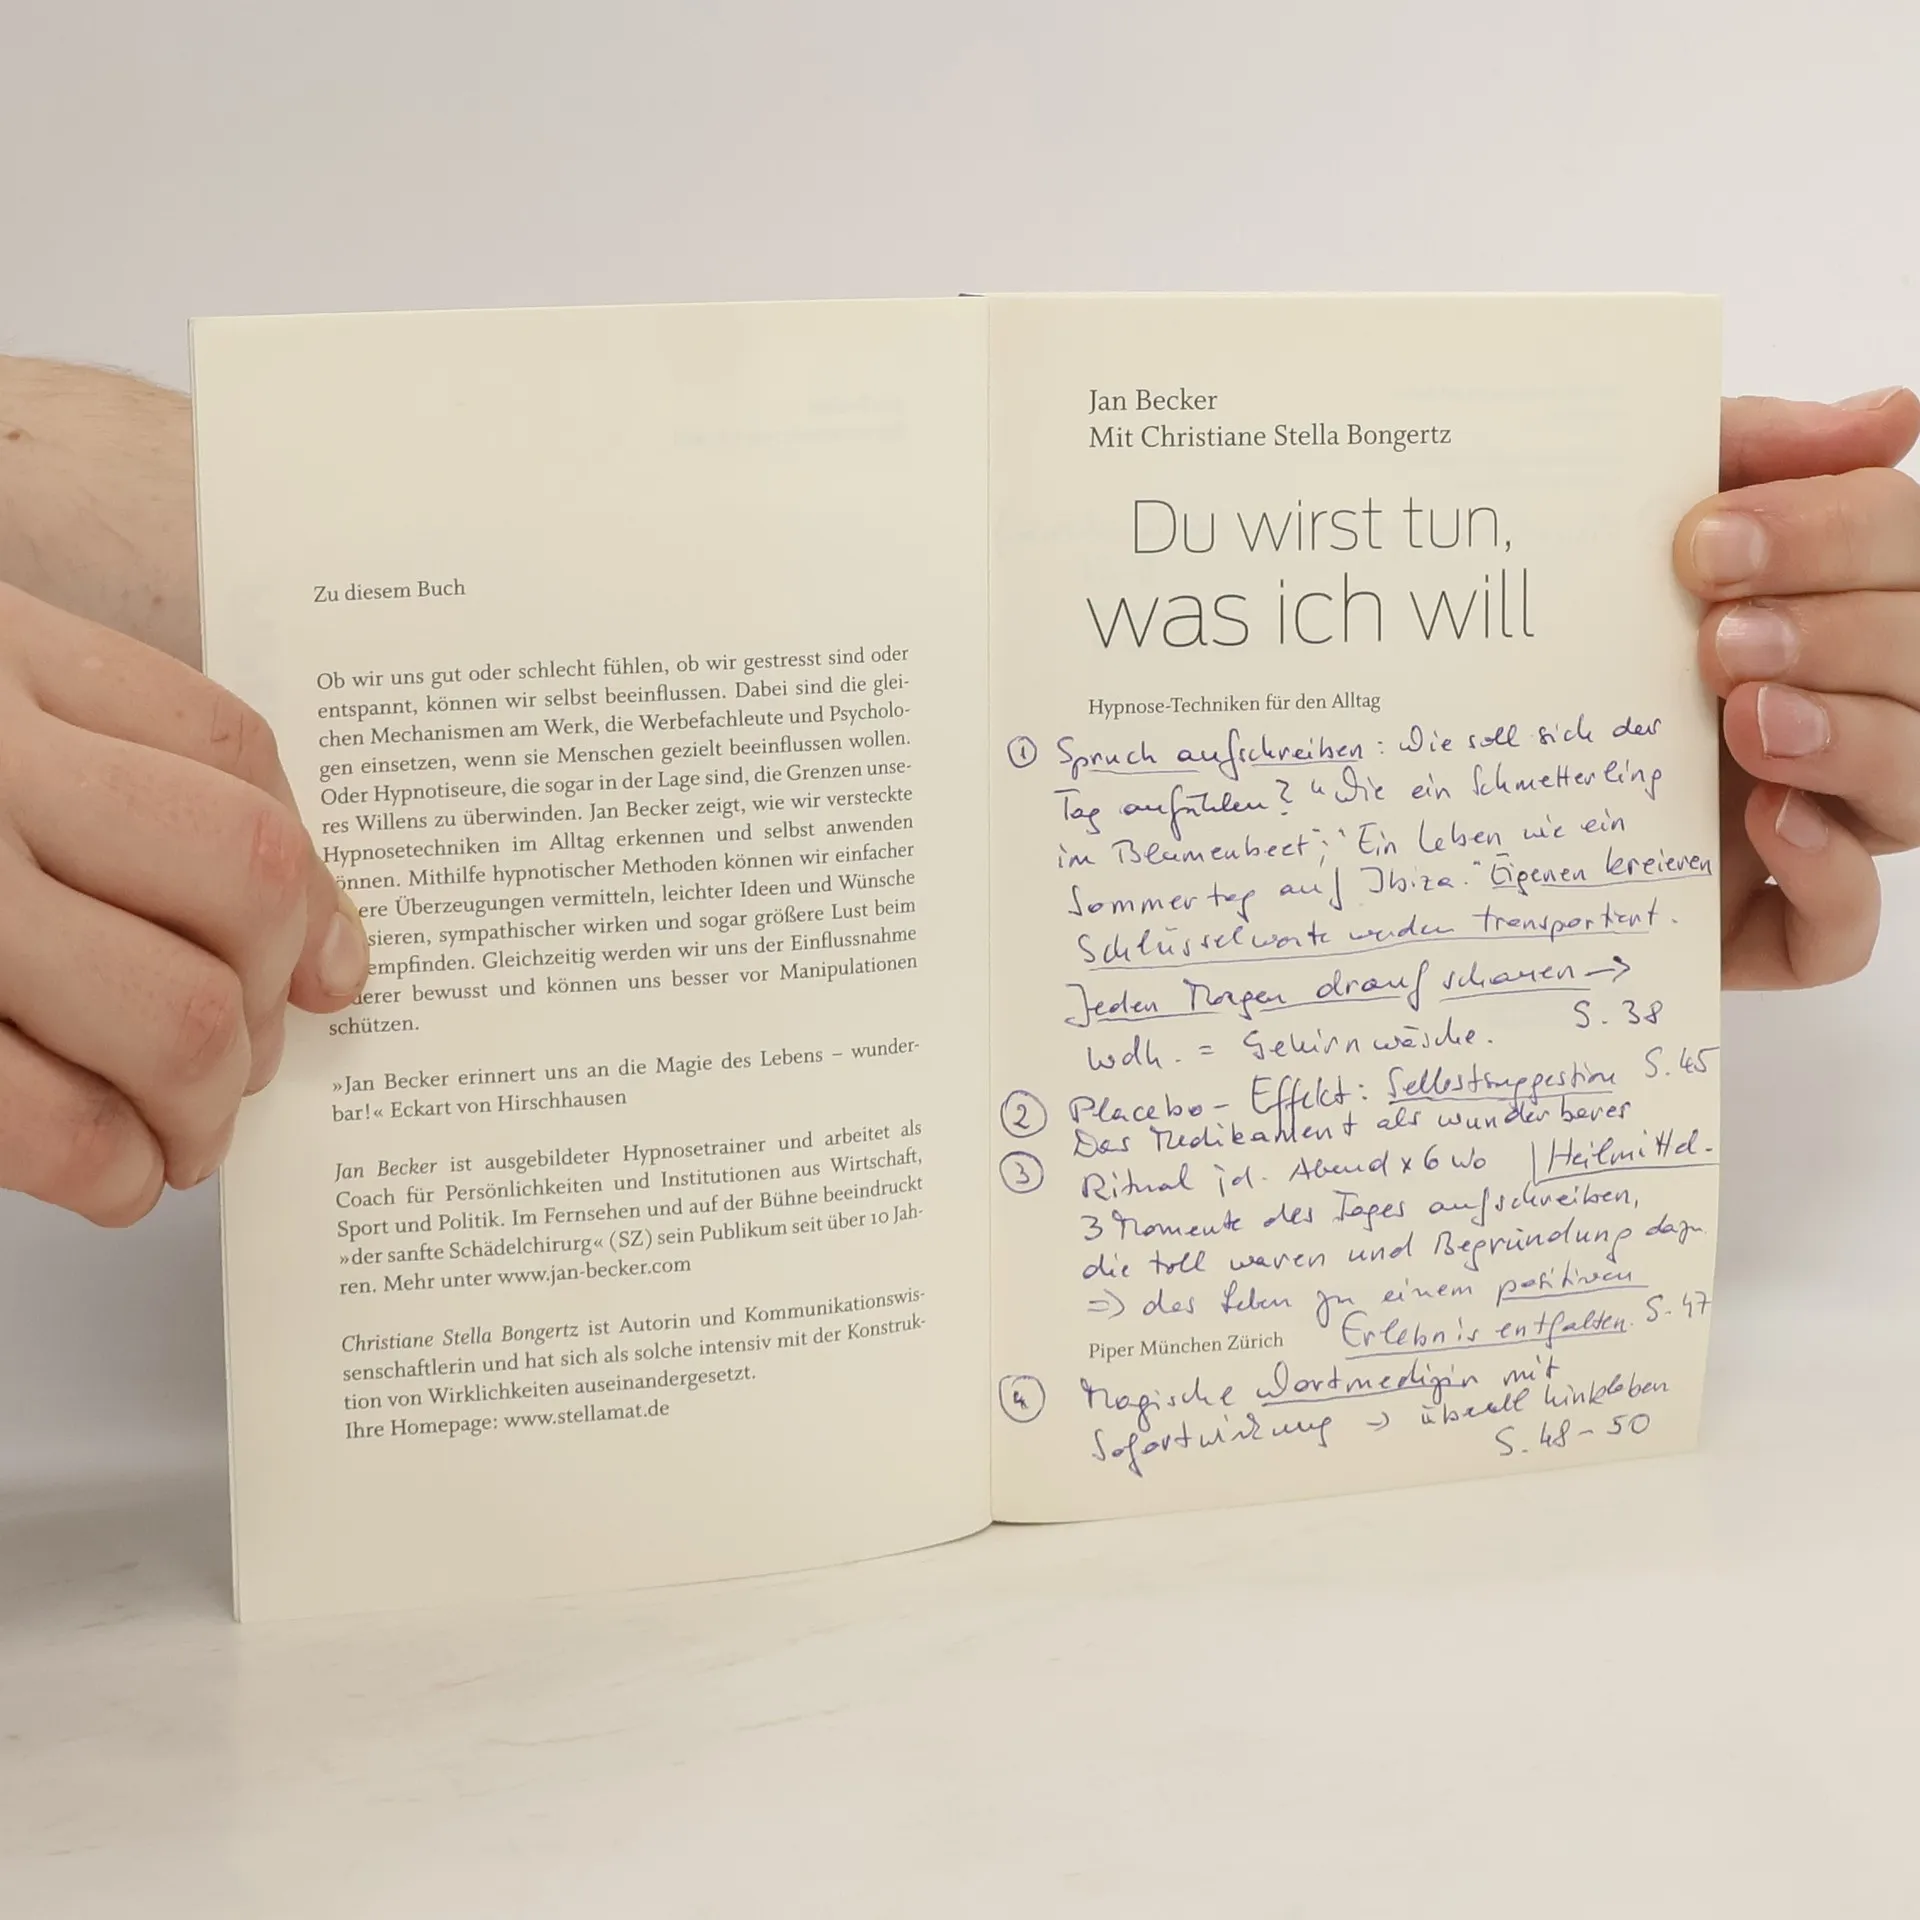 Zu diesem Buch
Ob wir uns gut oder schlecht fühlen, ob wir gestresst sind oder
entspannt, können wir selbst beeinflussen. Dabei sind die glei-
chen Mechanismen am Werk, die Werbefachleute und Psycholo-
gen einsetzen, wenn sie Menschen gezielt beeinflussen wollen.
Oder Hypnotiseure, die sogar in der Lage sind, die Grenzen unse-
res Willens zu überwinden. Jan Becker zeigt, wie wir versteckte
Hypnosetechniken im Alltag erkennen und selbst anwenden
önnen. Mithilfe hypnotischer Methoden können wir einfacher
ere Überzeugungen vermitteln, leichter Ideen und Wünsche
sieren, sympathischer wirken und sogar größere Lust beim
empfinden. Gleichzeitig werden wir uns der Einflussnahme
derer bewusst und können uns besser vor Manipulationen
schützen.
»Jan Becker erinnert uns an die Magie des Lebens – wunder-
bar!« Eckart von Hirschhausen
Jan Becker ist ausgebildeter Hypnosetrainer und arbeitet als
Coach für Persönlichkeiten und Institutionen aus Wirtschaft,
Sport und Politik. Im Fernsehen und auf der Bühne beeindruckt
»der sanfte Schädelchirurg« (SZ) sein Publikum seit über 10 Jah-
ren. Mehr unter www.jan-becker.com
Christiane Stella Bongertz ist Autorin und Kommunikationswis-
senschaftlerin und hat sich als solche intensiv mit der Konstruk-
tion von Wirklichkeiten auseinandergesetzt.
Ihre Homepage: www.stellamat.de
Jan Becker
Mit Christiane Stella Bongertz
Du wirst tun,
was ich will
Hypnose-Techniken für den Alltag
① Spruch aufschreiben: Wie soll sich der
Tag anfühlen? "Wie ein Schmetterling
im Blumenbeet"; "Ein Leben wie ein
Sommertag auf Ibiza." Eigenen kreieren
Schlüsselworte werden transportiert.
Jeden Morgen drauf schauen →
Wdh. = Gehirnwäsche. S. 38
② Placebo-Effekt: Selbstsuggestion S. 45
Das Medikament als wunderbares
Heilmittel.
③ Ritual jd. Abend x 6 Wo
3 Momente des Tages aufschreiben,
die toll waren und Begründung dazu
=> das Leben zu einem positiven
Erlebnis entfalten. S. 47
Piper München Zürich
④ Magische Wortmedizin mit
Sofortwirkung => überall hinkleben
S. 48 - 50